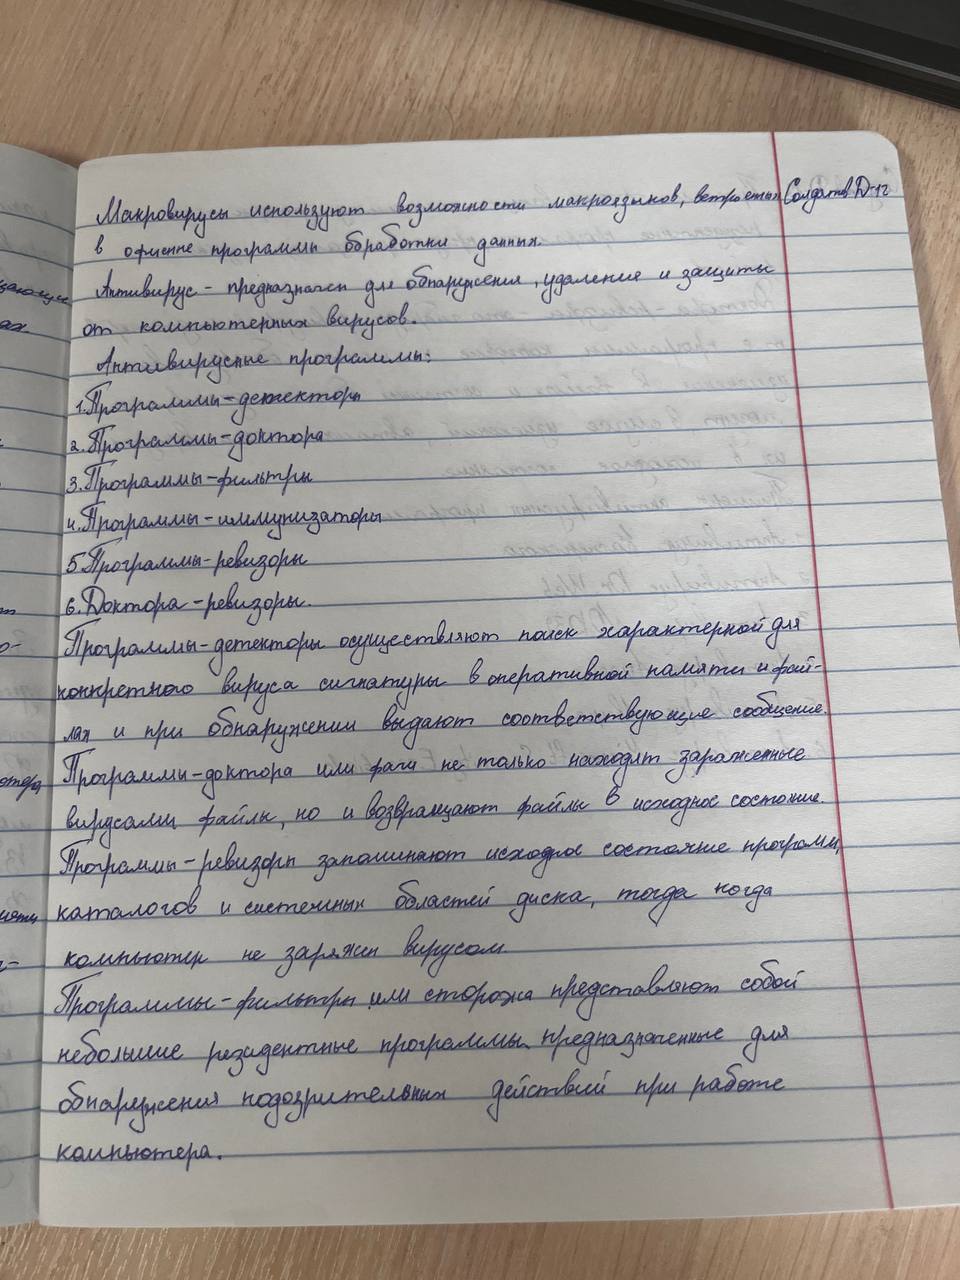 Макровирусы используют возможности макроязыков, встроеных Солдатов Д-12
в офисние программы обработки данных.
Антивирус - предназначен для обнаружения, удаление и защиты
от компьютерных вирусов.
Антивирусные программы:
1. Программы-детекторы
2. Программы-доктора
3. Программы-фильтры
4. Программы-иммунизаторы
5. Программы-ревизоры
6. Доктора-ревизоры.
Программы-детекторы осуществляют поиск характерной для
конкретного вируса сигнатуры в оперативной памяти и фай-
лах и при обнаружении выдают соответствующие сообщение.
Программы-доктора или фаги не только находят зараженные
вирусами файлы, но и возвращают файлы в исходное состояние.
Программы-ревизоры запоминают исходное состояние программ,
каталогов и системных областей диска, тогда когда
компьютер не заряжен вирусом
Программы-фильтры или сторожа представляют собой
небольшие резидентные программы, предназначенные для
обнаружения подозрительных действий при работе
компьютера.